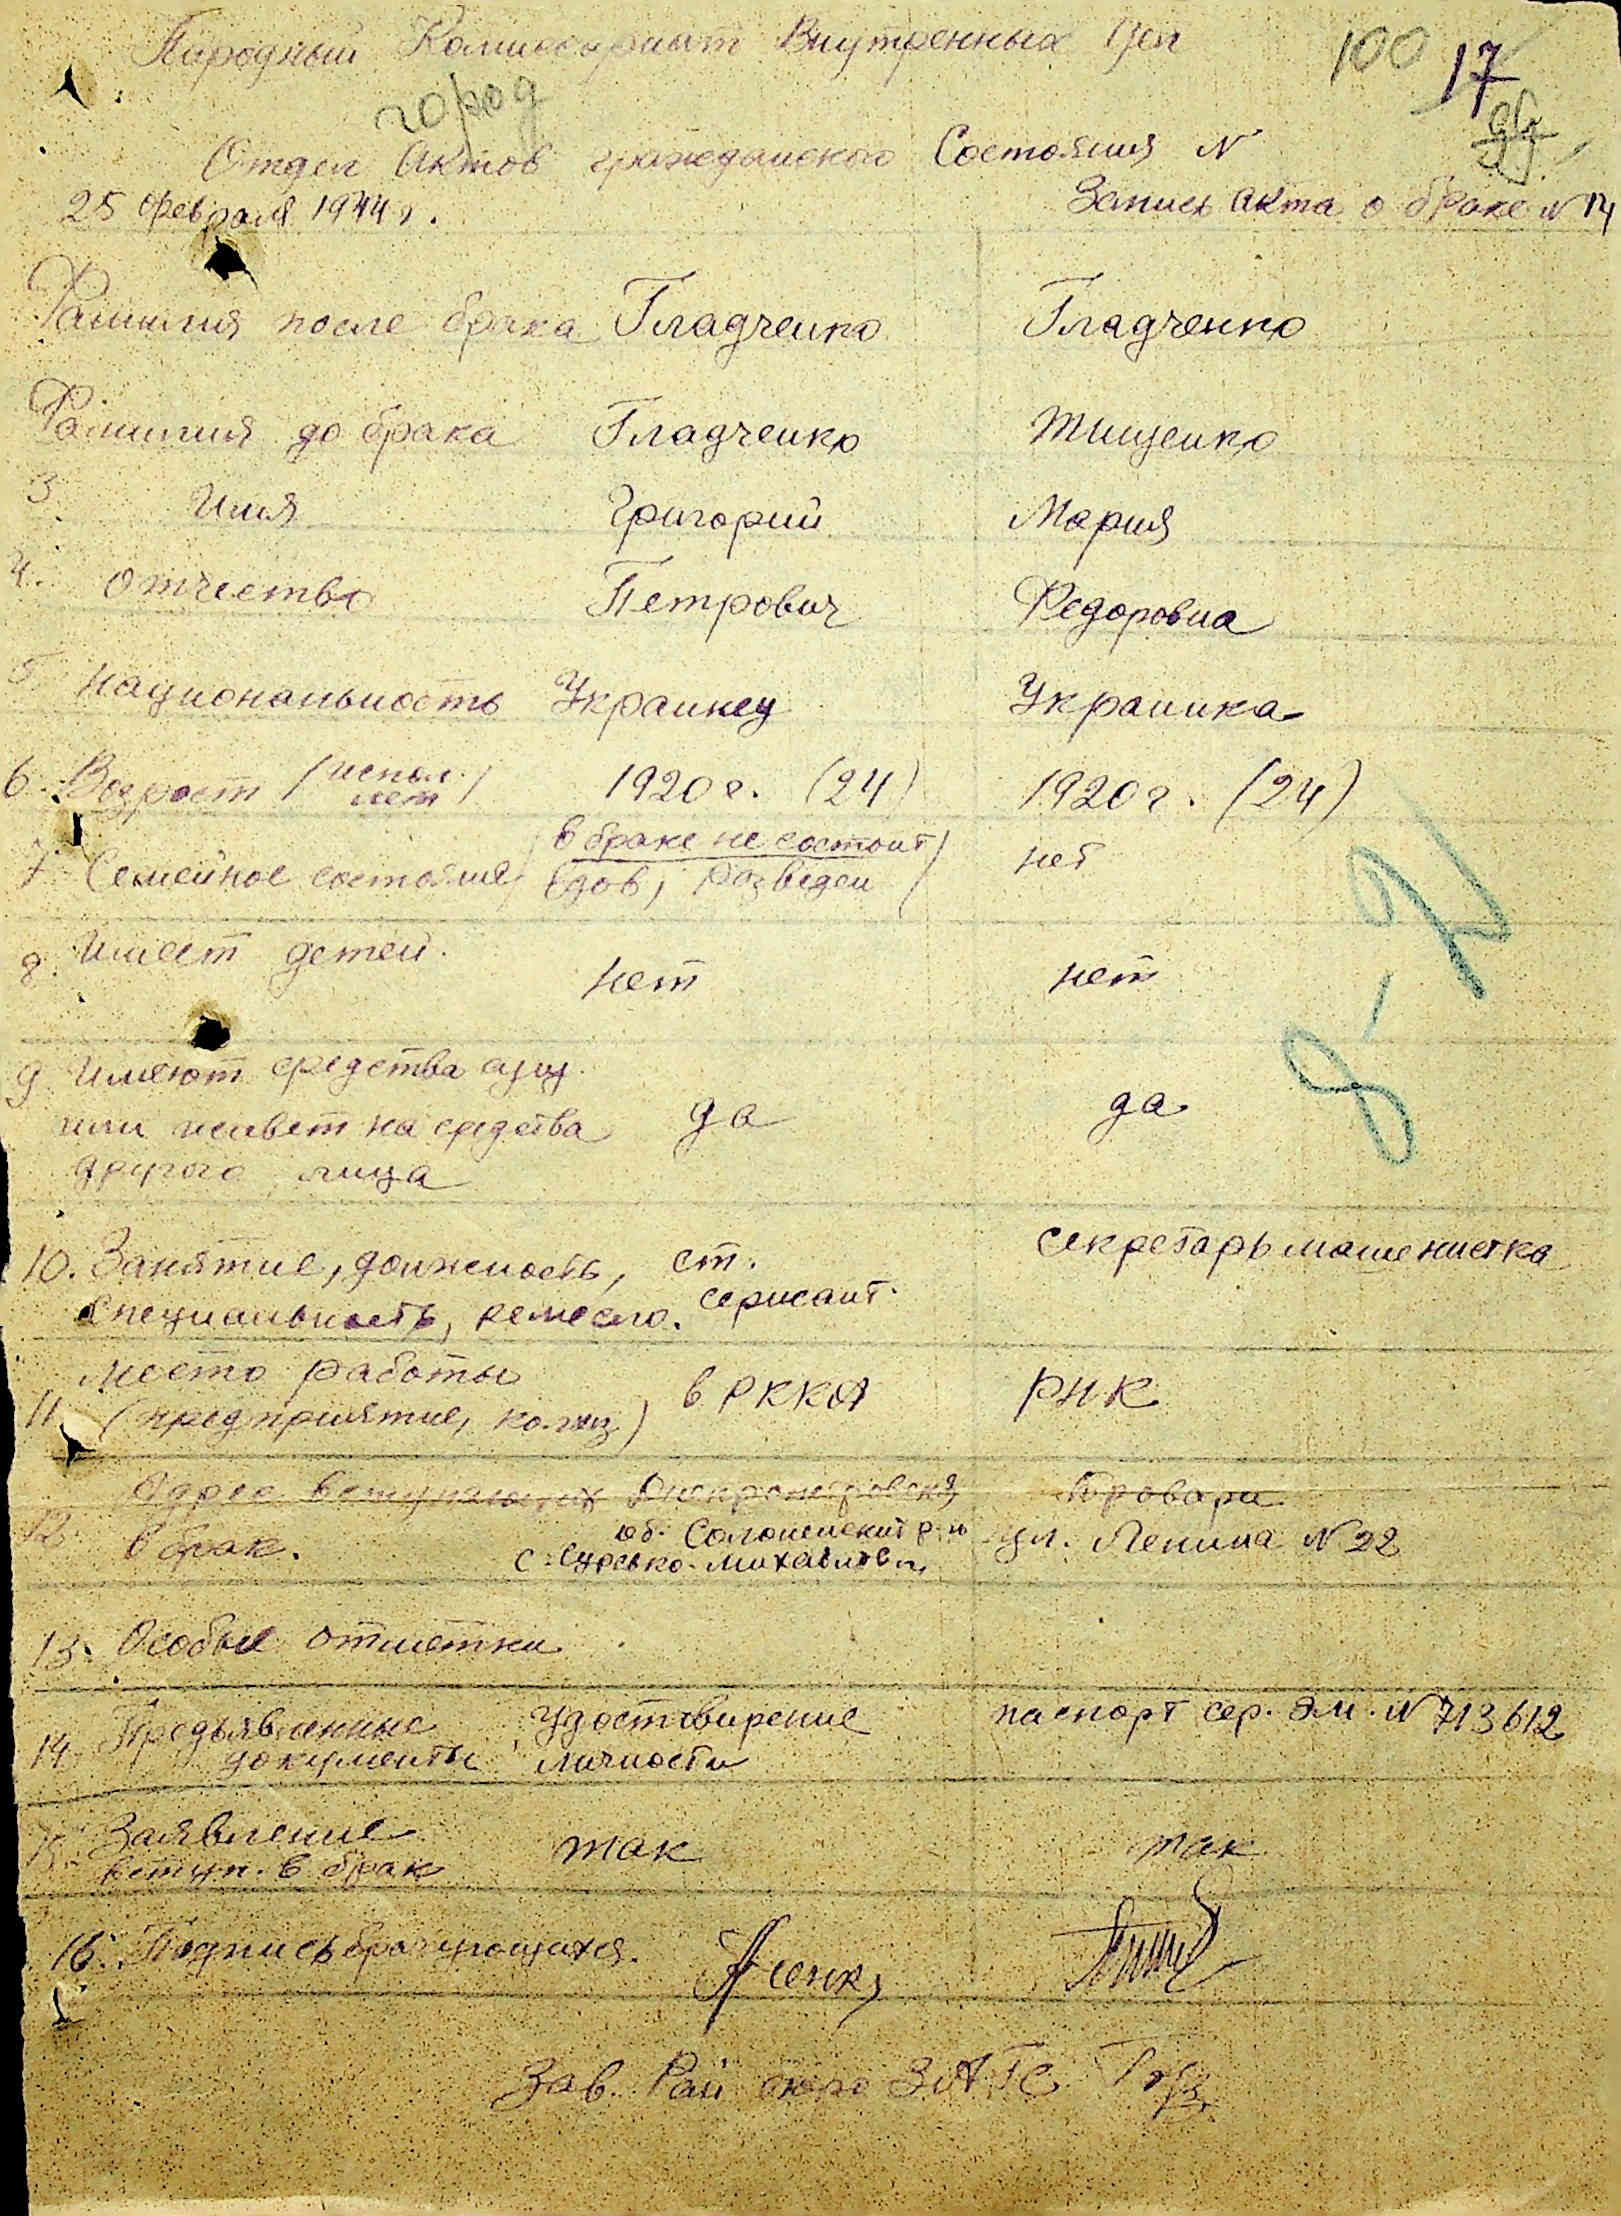 Народный Комиссариат Внутренных Дел
100 17
город
Отдел Актов гражданского Состояния N
25 февраля 1944 г.
Запись акта о браке N 14
Фамилия после брака Гладченко Гладченко
Фамилия до брака Гладченко Тищенко
3. Имя Григорий Мария
4. Отчество Петрович Федоровна
5 Национальность Украинец Украинка
6. Возраст (испол. лет) 1920 г. (24) 1920 г. (24)
7 Семейное состояние (в браке не состоит нет
вдов, разведен)
8. Имеет детей.
нет нет
8 -
9 Имеют средства сущ.
или живет на средства да да
другого лица
10. Занятие, должность, ст. секретарь машенистка
специальность, ремесло. сержант.
место работы
11. (предприятие, колхоз) в РККА РНК
Адрес вступающих Днепропетровская Бровари
12. в брак. об. Солонянский р-н ул. Ленина N 22
с. Сурсько-Михайловка
13. Особые отметки
14 Предъявленные Удоствирение паспорт сер. ЭМ. N 713612
документы личности
15. Заявление так так
вступ. в брак
16. Подпись брачующихся.
Зав. Рай бюро ЗАГС